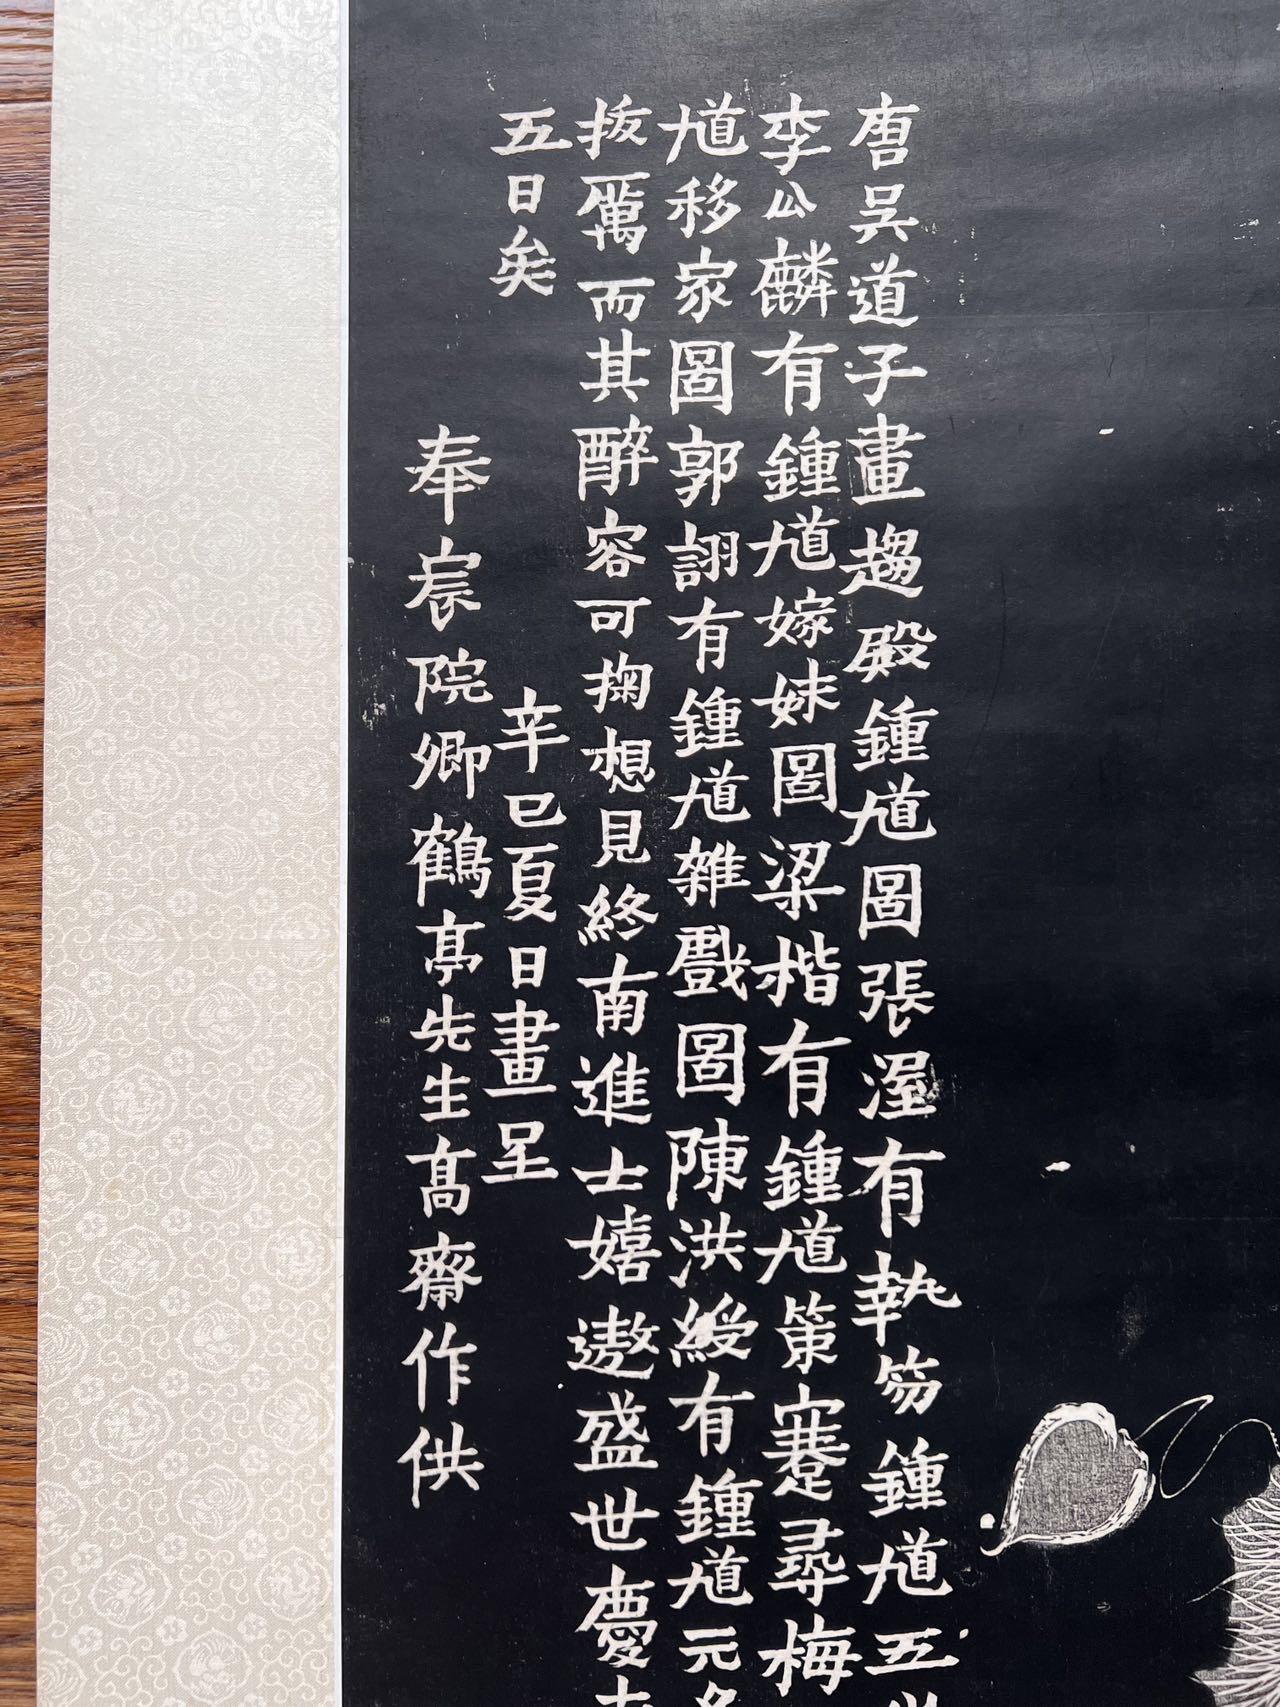 唐吳道子畫趨殿鍾馗圖張渥有執笏鍾馗五
李公麟有鍾馗嫁妹圖梁楷有鍾馗策蹇尋梅
馗移家圖郭詡有鍾馗雜戲圖陳洪綬有鍾馗元
拔厲而其醉容可掬想見終南進士嬉遨盛世慶
五日矣
辛巳夏日畫呈
奉宸院卿鶴亭先生高齋作供